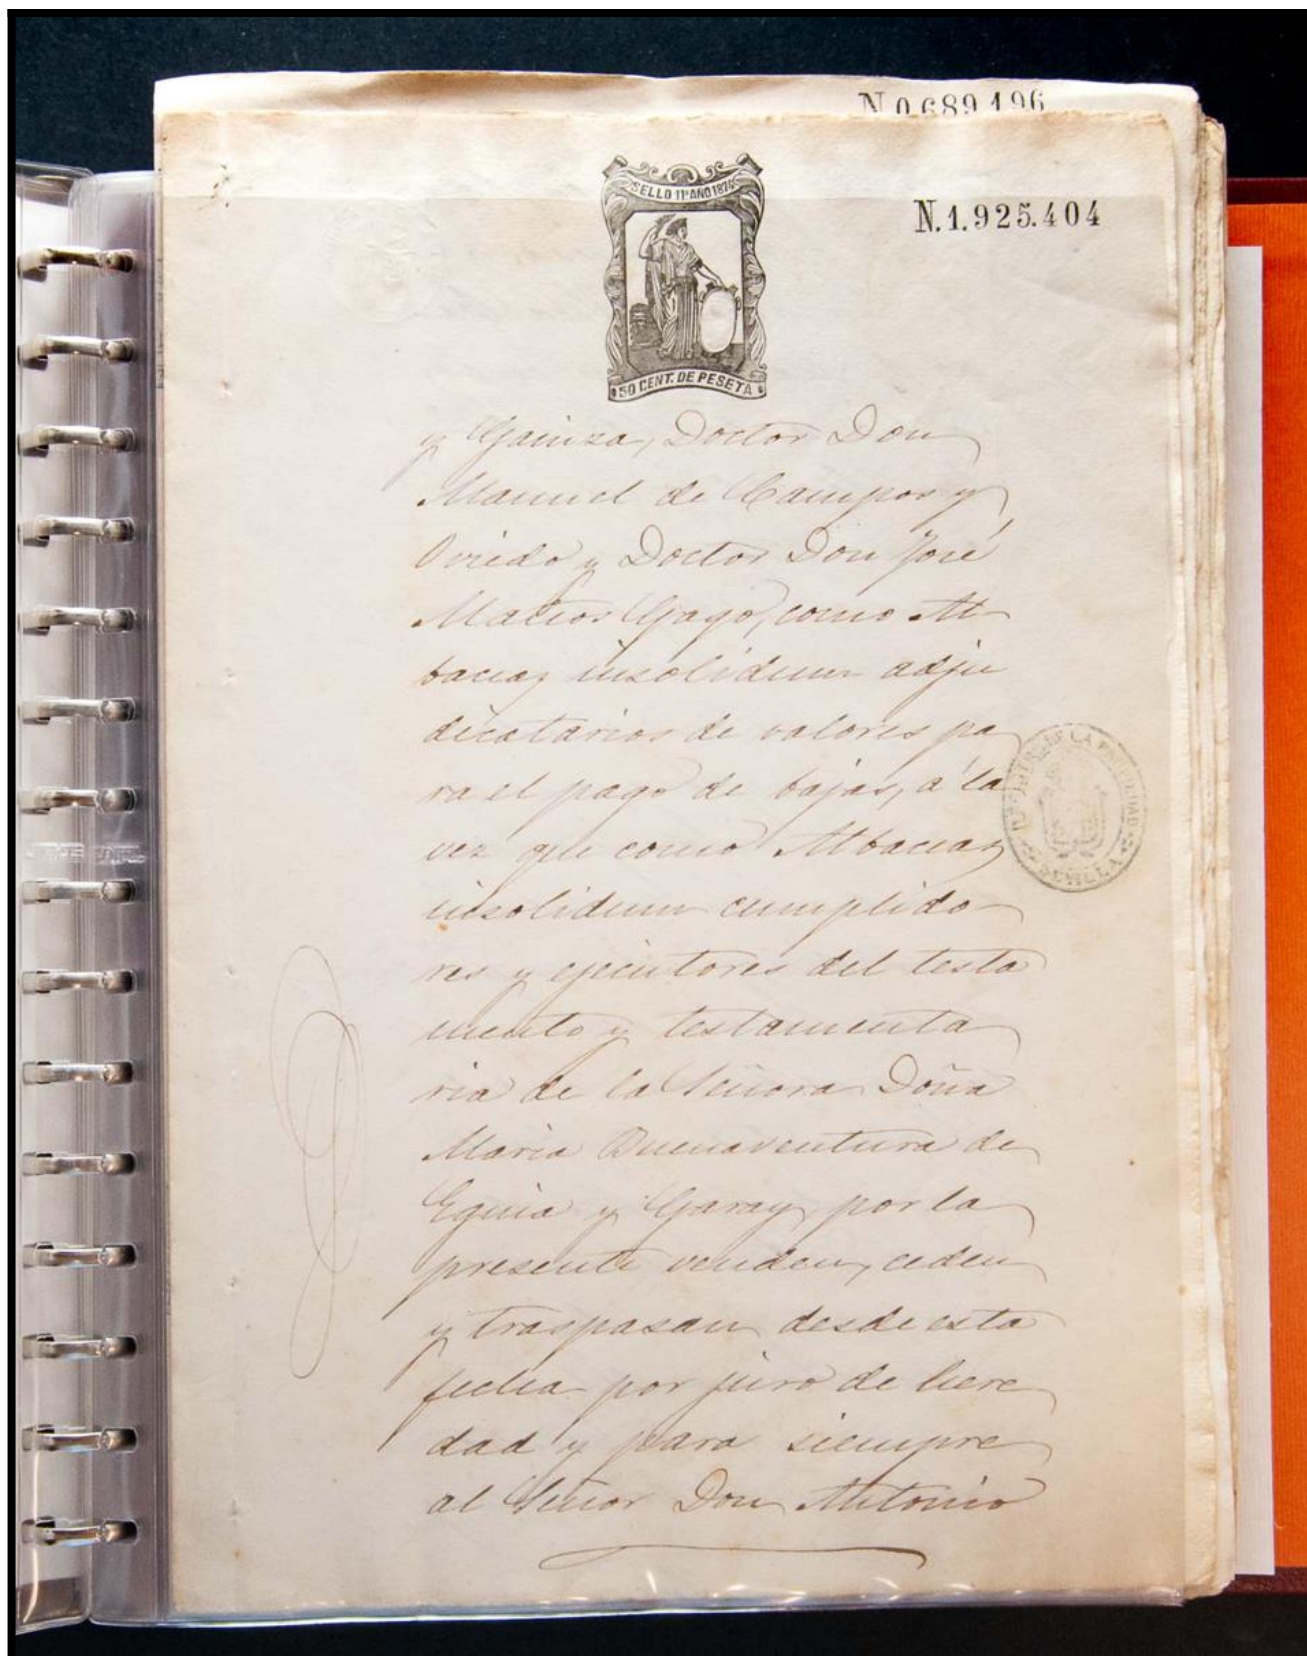 N.0.689.196
SELLO 11º AÑO 1874
N.1.925.404
50 CENT. DE PESETA
y Gainza, Doctor Don
Manuel de Campos y
Oviedo y Doctor Don José
Mateos Gago, como Al-
baceas insolidum adju
dicatarios de valores pa
ra el pago de bajas, á la
vez que como Albaceas
insolidum cumplido
res y ejecutores del testa
mento y testamenta
ria de la Señora Doña
Maria Buenaventura de
Eguia y Garay, por la
presente venden, ceden
y traspasan desde esta
fecha por juro de here
dad y para siempre
al Señor Don Antonio
DE LA PROPIEDAD
SEVILLA